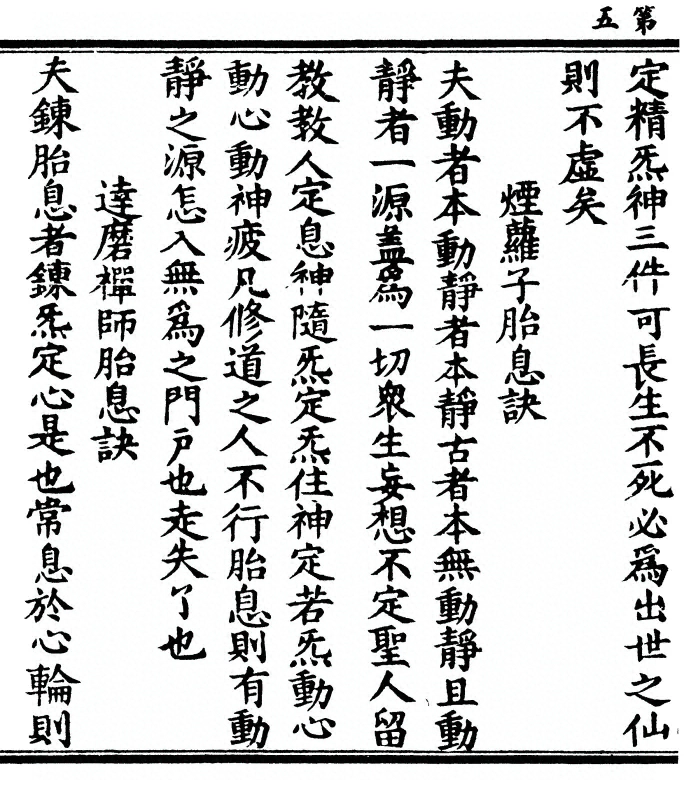 第五
定精炁神三件可長生不死必爲出世之仙
則不虛矣
煙蘿子胎息訣
夫動者本動靜者本靜古者本無動靜且動
靜者一源蓋爲一切衆生妄想不定聖人留
教教人定息神隨炁定炁住神定若炁動心
動心動神疲凡修道之人不行胎息則有動
靜之源怎入無爲之門戶也走失了也
達磨禪師胎息訣
夫鍊胎息者鍊炁定心是也常息於心輪則